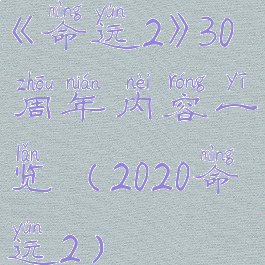 mìng yùn
《命运2》30
zhōu nián nèi róng yī
周年内容一
lǎn mìng
览（2020命
yùn
运2）